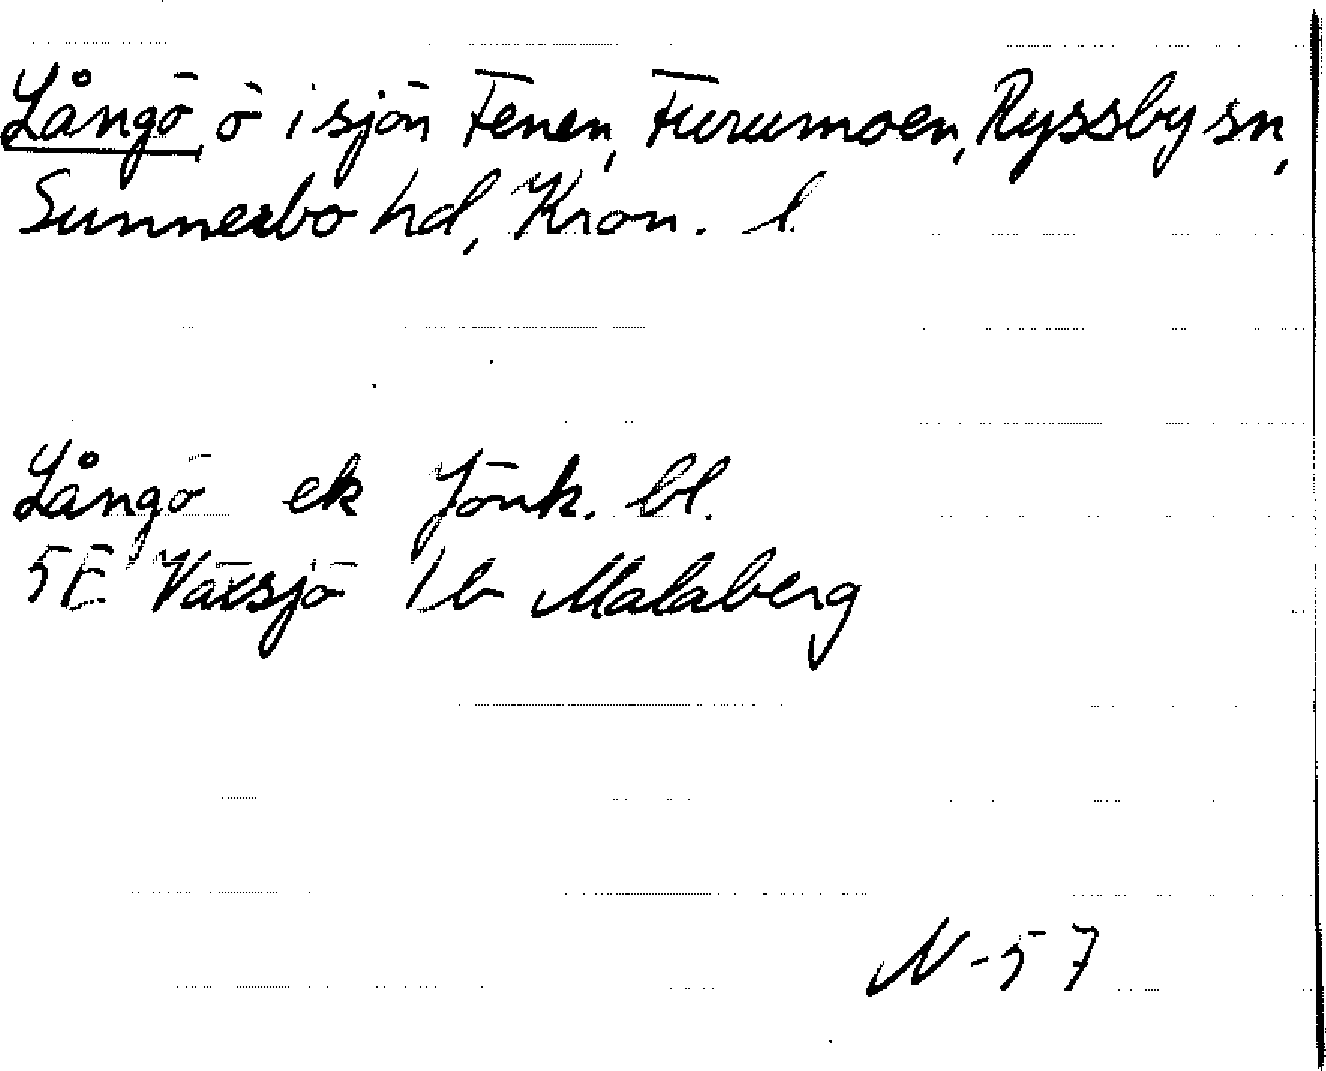 Långö, ö i sjön Fenen, Furumoen, Ryssby sn,
Sunnerbo hd, Kron. l.
Långö ek Jönk. bl.
5E Växsjö 1b Målaberg
N-57